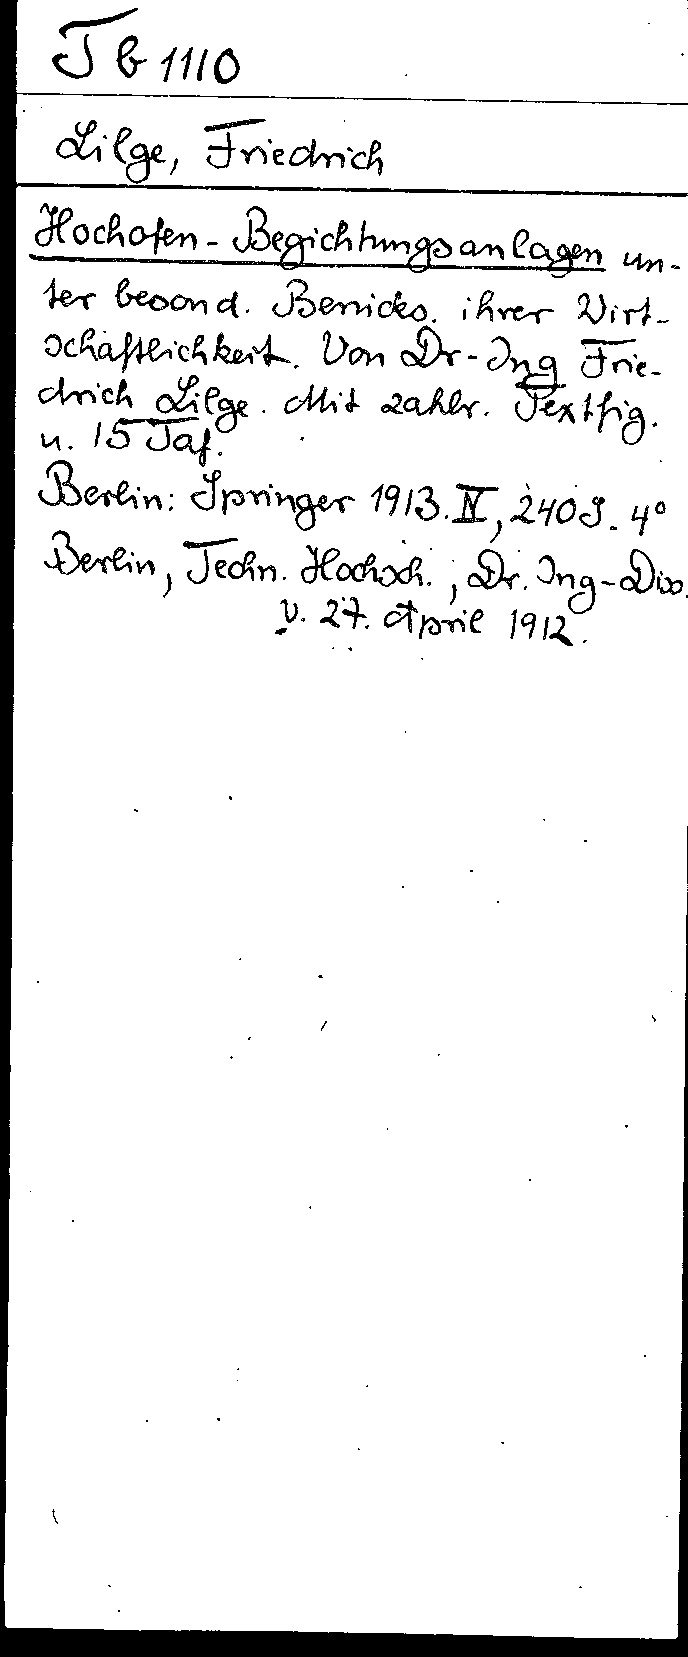 Tb 1110
Lilge, Friedrich
Hochofen-Begichtungsanlagen un-
ter besond. Berücks. ihrer Wirt-
schaftlichkeit. Von Dr-Ing Frie-
drich Lilge. Mit zahlr. Textfig.
u. 15 Taf.
Berlin: Springer 1913. IV, 240 S. 4°
Berlin, Techn. Hochsch., Dr. Ing-Diss.
v. 27. April 1912.